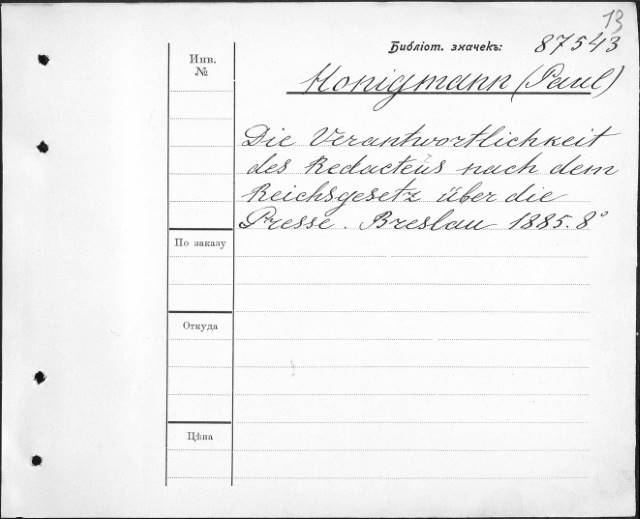 13
Библіот. значекъ: 87543
Инв.
№
Honigmann (Paul)
Die Verantwortlichkeit
des Redacteus nach dem
Reichsgesetz über die
Presse. Breslau 1885. 8°
По заказу
Откуда
Цѣна